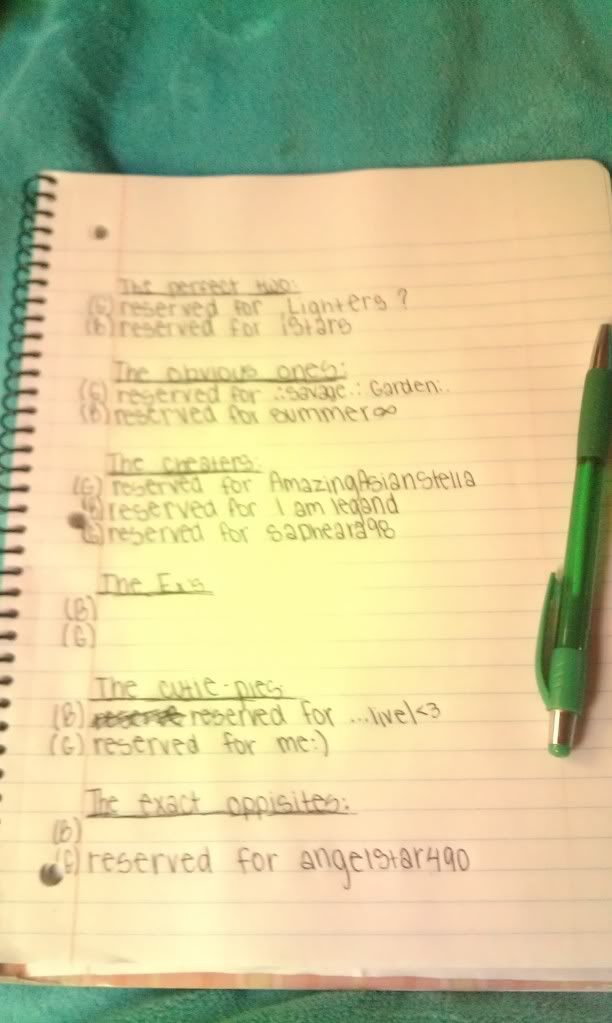 The perfect two:
(G) reserved for Lighters?
(B) reserved for iStars
The obvious ones:
(G) reserved for .:savage.: Garden:.
(B) reserved for summer∞
The cheaters:
(G) reserved for AmazingAsianStella
(B) reserved for I am legand
(G) reserved for
The Ex's
(B)
(G)
The cutie-pies
(B) reserved for ...live|<3
(G) reserved for me:)
The exact oppisites:
(B)
(G) reserved for angelstar490